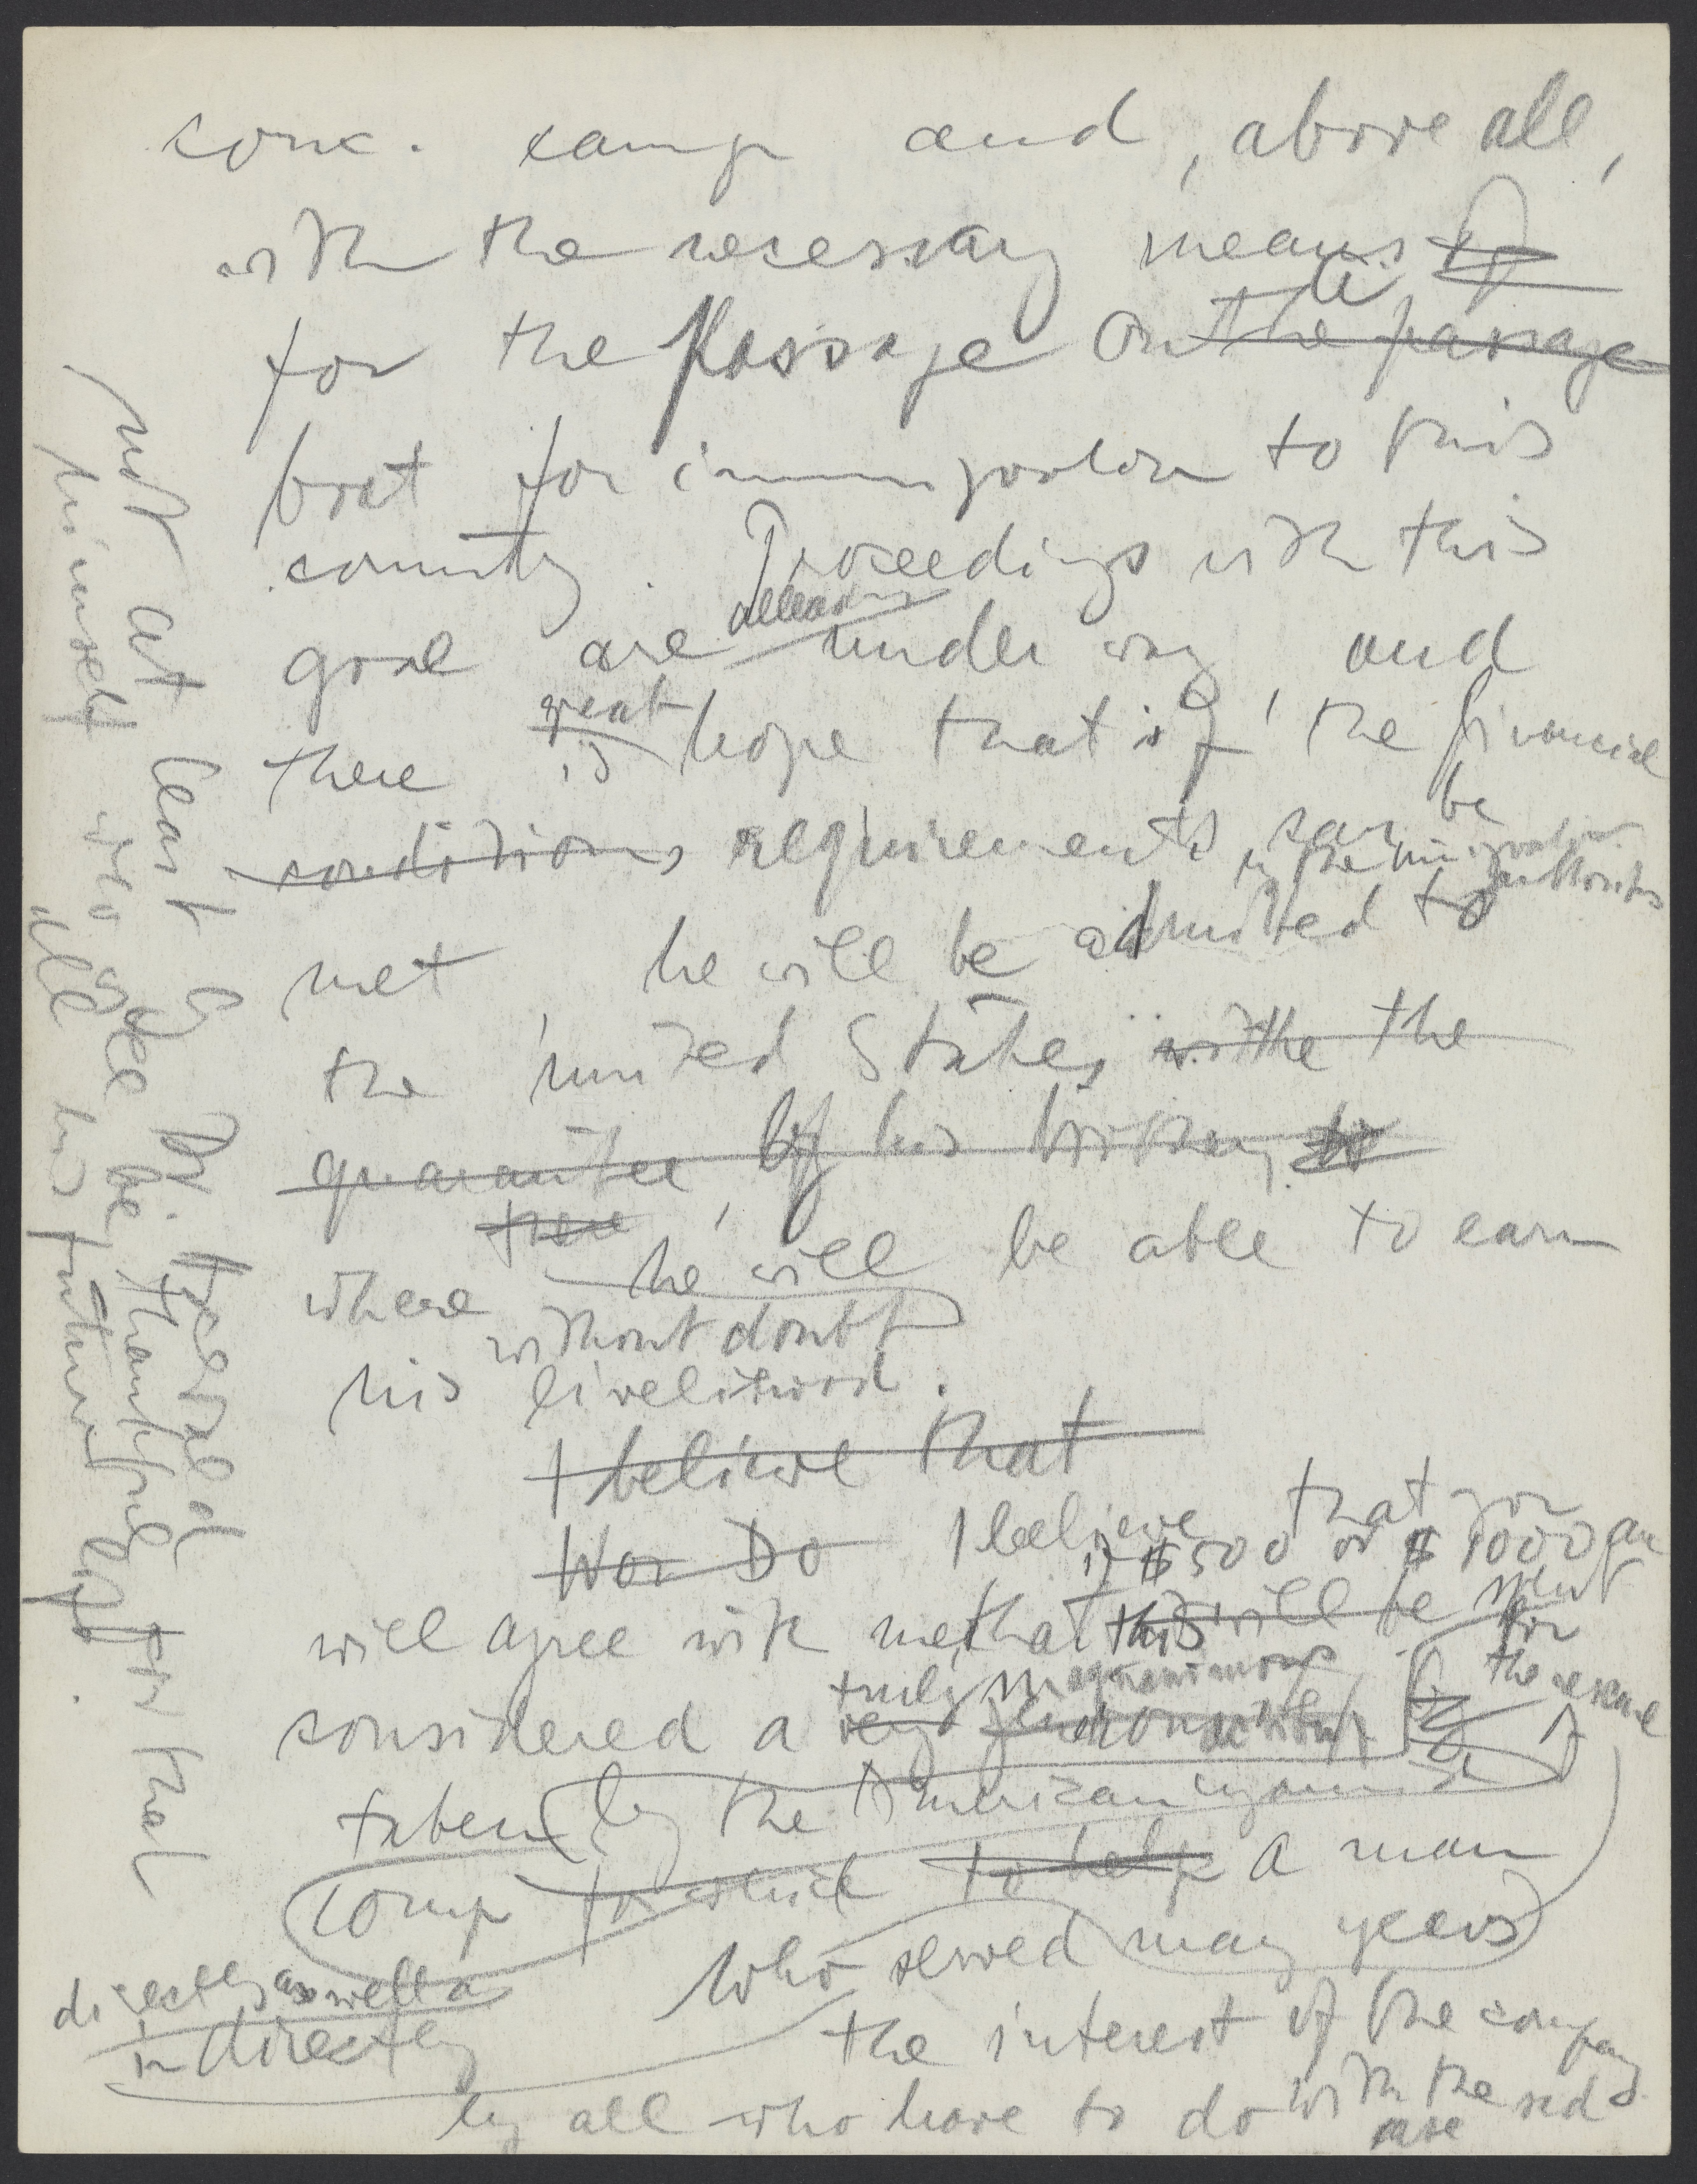 conc. camp and, above all,
with the necessary means of
for the Passage on the passage
boat for immigration to this
country. Proceedings with this
already
goal are under way, and
great
there is hope that if, the financial
conditions requirements can be
by the immigration authorities
met he will be admitted to
the United States with the the
guarantee of his brother,
where he will be able to earn
without doubt
his livelihood.
I believe that
Wor Do I believe that you
if $500 or $1000 are
will agree with me, that this will be spent
for the rescue
considered a very truly magnanimous
taken by the American
comp for which to help a man
who served many years
directly as well as
indirectly
the interest of the company
by all who have to do with the sad
case
not at least by Dr. Herzog for that
himself who will be thankful
all his future life.